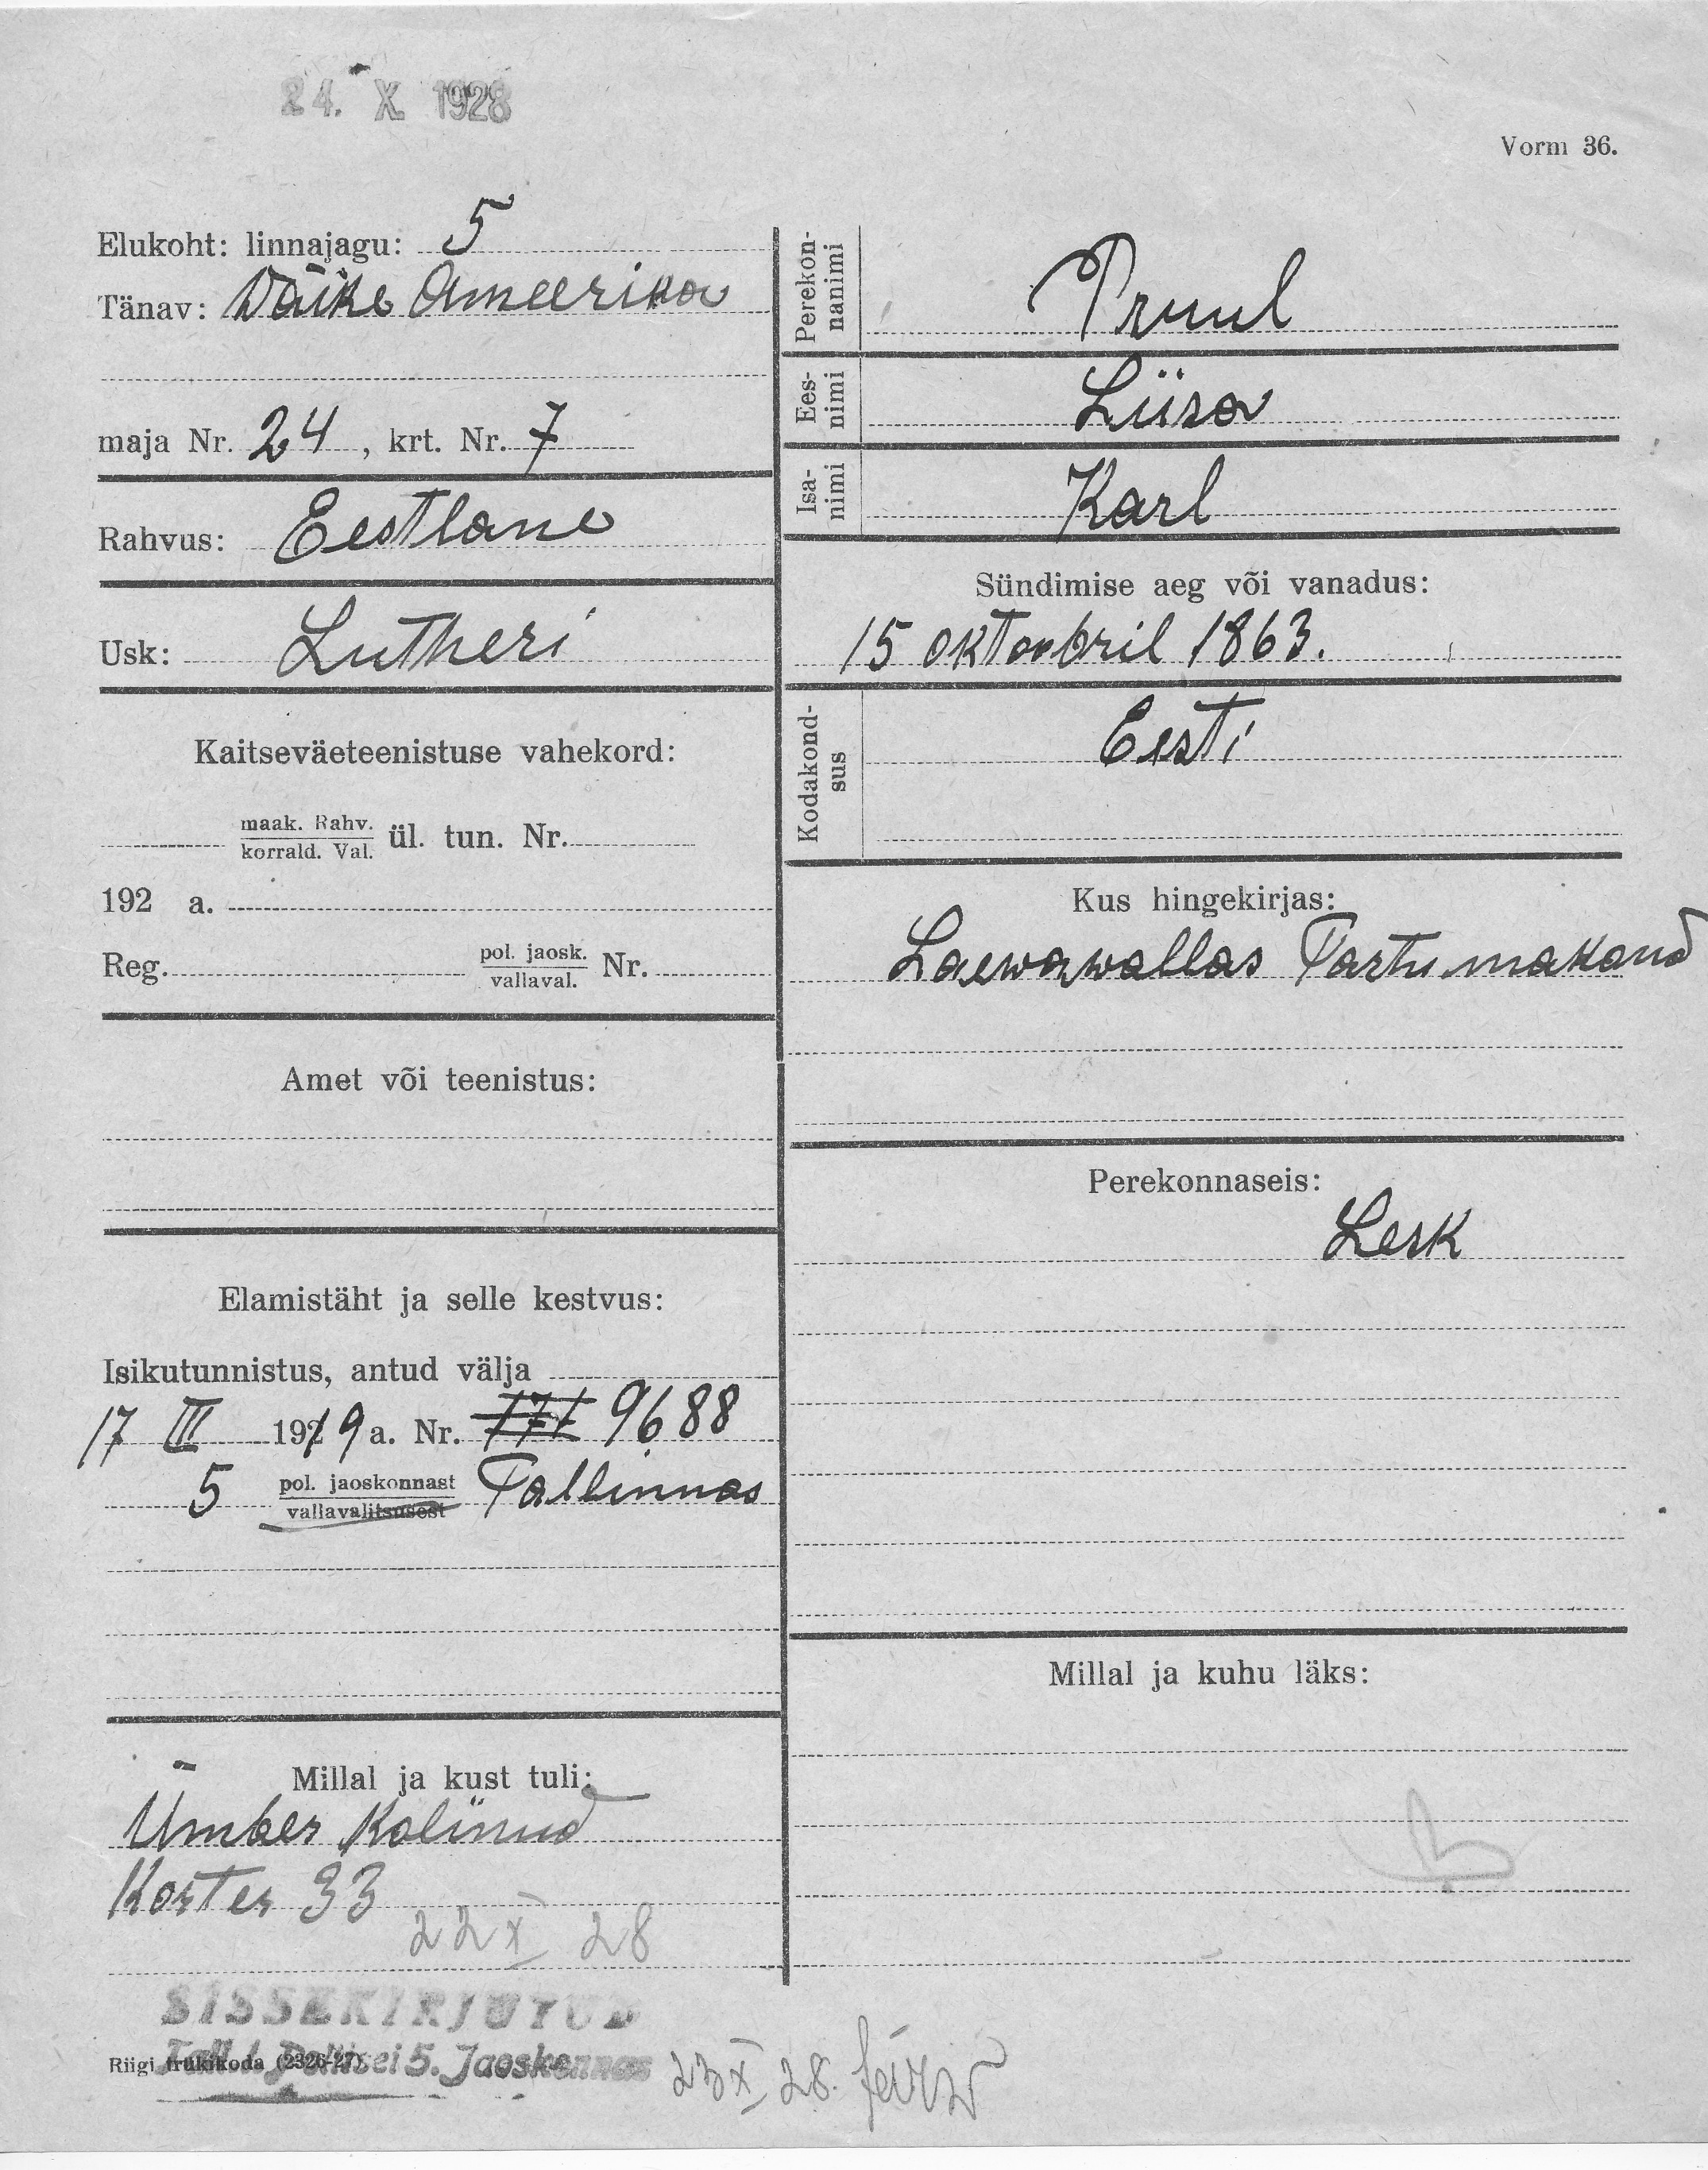 24. X 1928
Vorm 36.
Elukoht: linnajagu: 5
Tänav: Väike Ameerika
maja Nr. 24, krt. Nr. 7
Rahvus: Eestlane
Usk: Lutheri
Kaitseväeteenistuse vahekord:
maak. Rahv.
korrald. Val. ül. tun. Nr.
192 a.
Reg. pol. jaosk.
vallaval. Nr.
Amet või teenistus:
Elamistäht ja selle kestvus:
Isikutunnistus, antud välja
17 III 1919 a. Nr. 171 9688
5 pol. jaoskonnast Tallinnas
vallavalitsusest
Millal ja kust tuli:
Ümber kolinud
Korter 33
22 X 28
SISSEKIRJUTUD
Tall. Politsei 5. Jaoskonnas
Riigi trükikoda (2326-27)
23 X 28.
Perekon-
nanimi
Pruul
Ees-
nimi
Liisa
Isa-
nimi
Karl
Sündimise aeg või vanadus:
15 oktoobril 1863.
Kodakond-
sus
Eesti
Kus hingekirjas:
Laewawallas Tartumakond
Perekonnaseis:
Lesk
Millal ja kuhu läks: